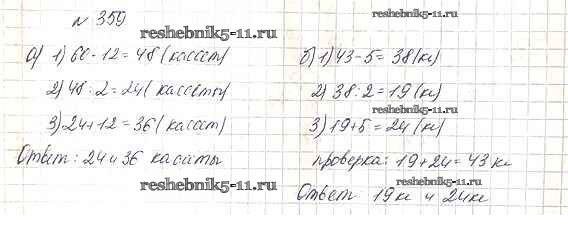 № 359
reshebnik5-11.ru
reshebnik5-11.ru
а) 1) 60-12=48(кассет)
2) 48:2=24(кассеты)
3) 24+12=36(кассет)
Ответ: 24 и 36 кассеты
reshebnik5-11.ru
б) 1) 43-5=38(кг)
2) 38:2=19(кг)
reshebnik5-11.ru
3) 19+5=24(кг)
проверка: 19+24=43 кг
reshebnik5-11.ru
Ответ 19 кг и 24 кг